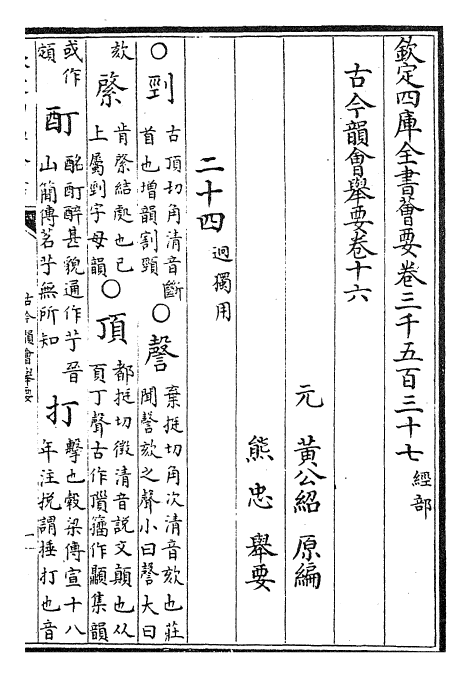 欽定四庫全書薈要卷三千五百三十七 經部
古今韻會舉要卷十六
元 黃公紹 原編
熊 忠 舉要
二十四 迥獨用
○剄 古頂切角清音斷首也增韻割頸○謦 棄挺切角次清音欬也莊聞謦欬之聲小曰謦大曰
欬 綮 肯綮結處也已上屬剄字母韻○頂 都挺切徵清音說文顛也从頁丁聲古作籀作集韻
或作 酊 酩酊醉甚貌通作艼晉山簡傳茗艼無所知 打 擊也穀梁傳宣十八年注捝謂捶打也音
古今韻會舉要